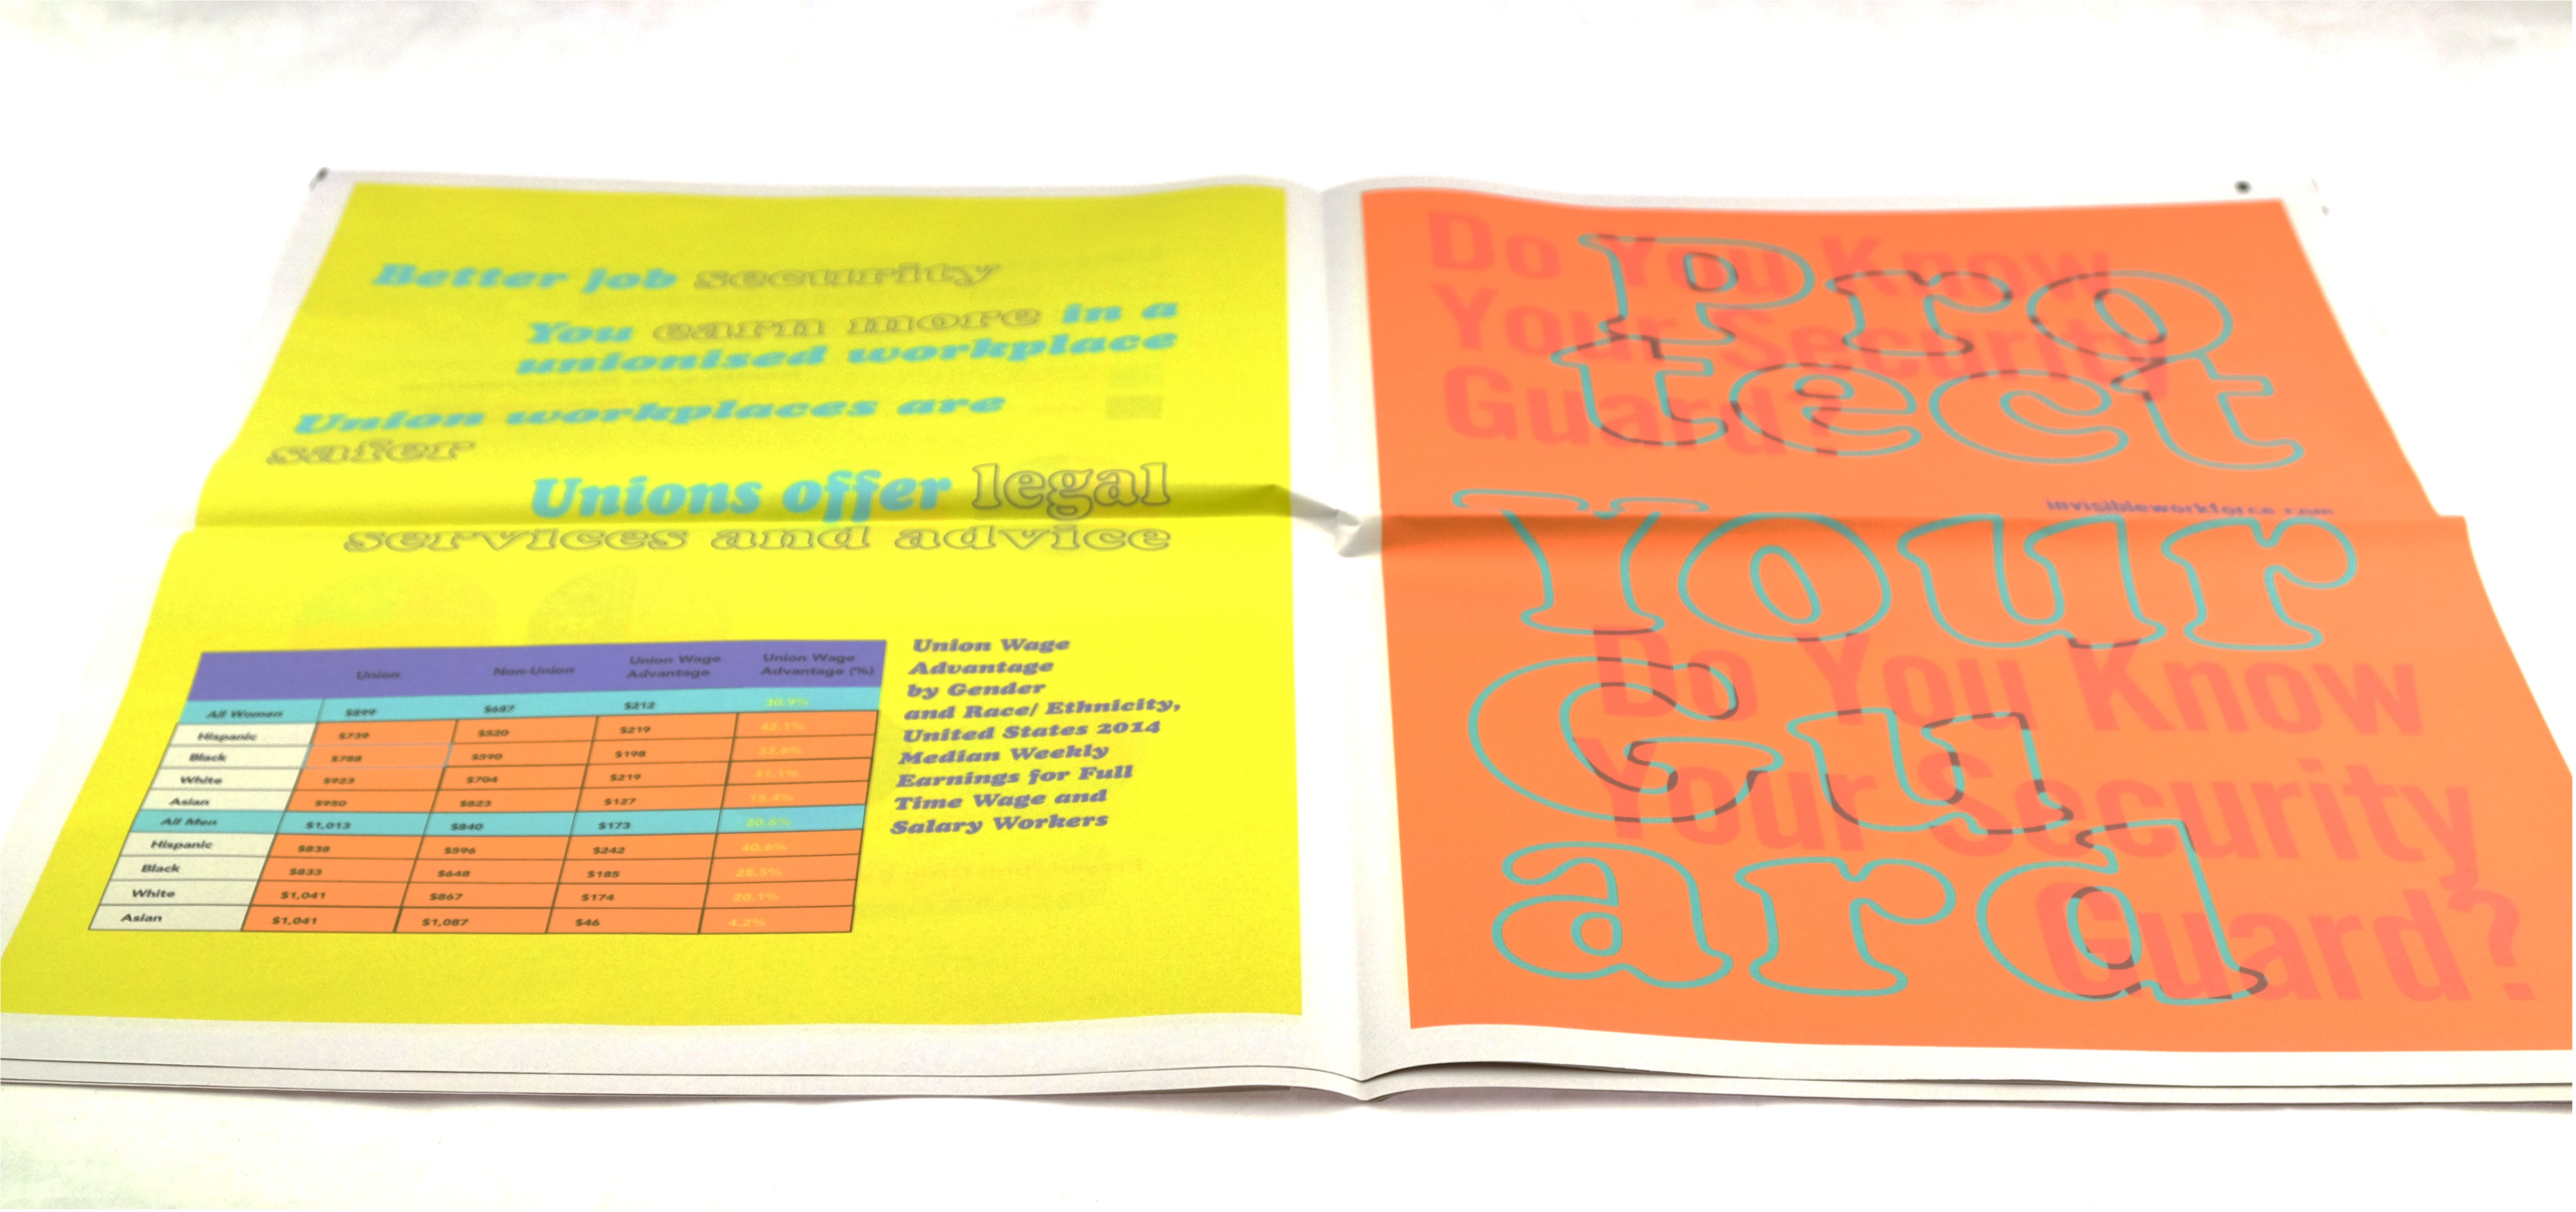 Better job security
You earn more in a
unionised workplace
Union workplaces are
safer
Unions offer legal
services and advice
Union Non-Union Union Wage Advantage Union Wage Advantage (%)
All Women $899 $687 $212 30.9%
Hispanic $739 $520 $219 42.1%
Black $788 $590 $198 33.6%
White $923 $704 $219 31.1%
Asian $950 $823 $127 15.4%
All Men $1,013 $840 $173 20.6%
Hispanic $838 $596 $242 40.6%
Black $833 $648 $185 28.5%
White $1,041 $867 $174 20.1%
Asian $1,041 $1,087 $46 4.2%
Union Wage
Advantage
by Gender
and Race/ Ethnicity,
United States 2014
Median Weekly
Earnings for Full
Time Wage and
Salary Workers
Do You Know
Your Security
Guard?
Pro
tect
Your
Gu
ard
invisibleworkforce.com
Do You Know
Your Security
Guard?